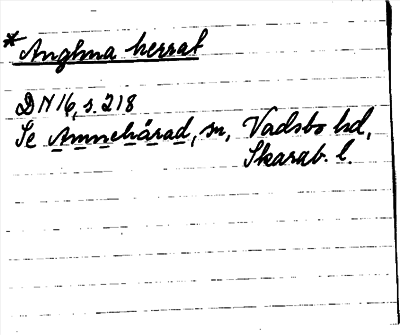 * Anglma herrat
DN 16, s. 218
Se Amnehärad, sn, Vadsbo hd,
Skarab. l.